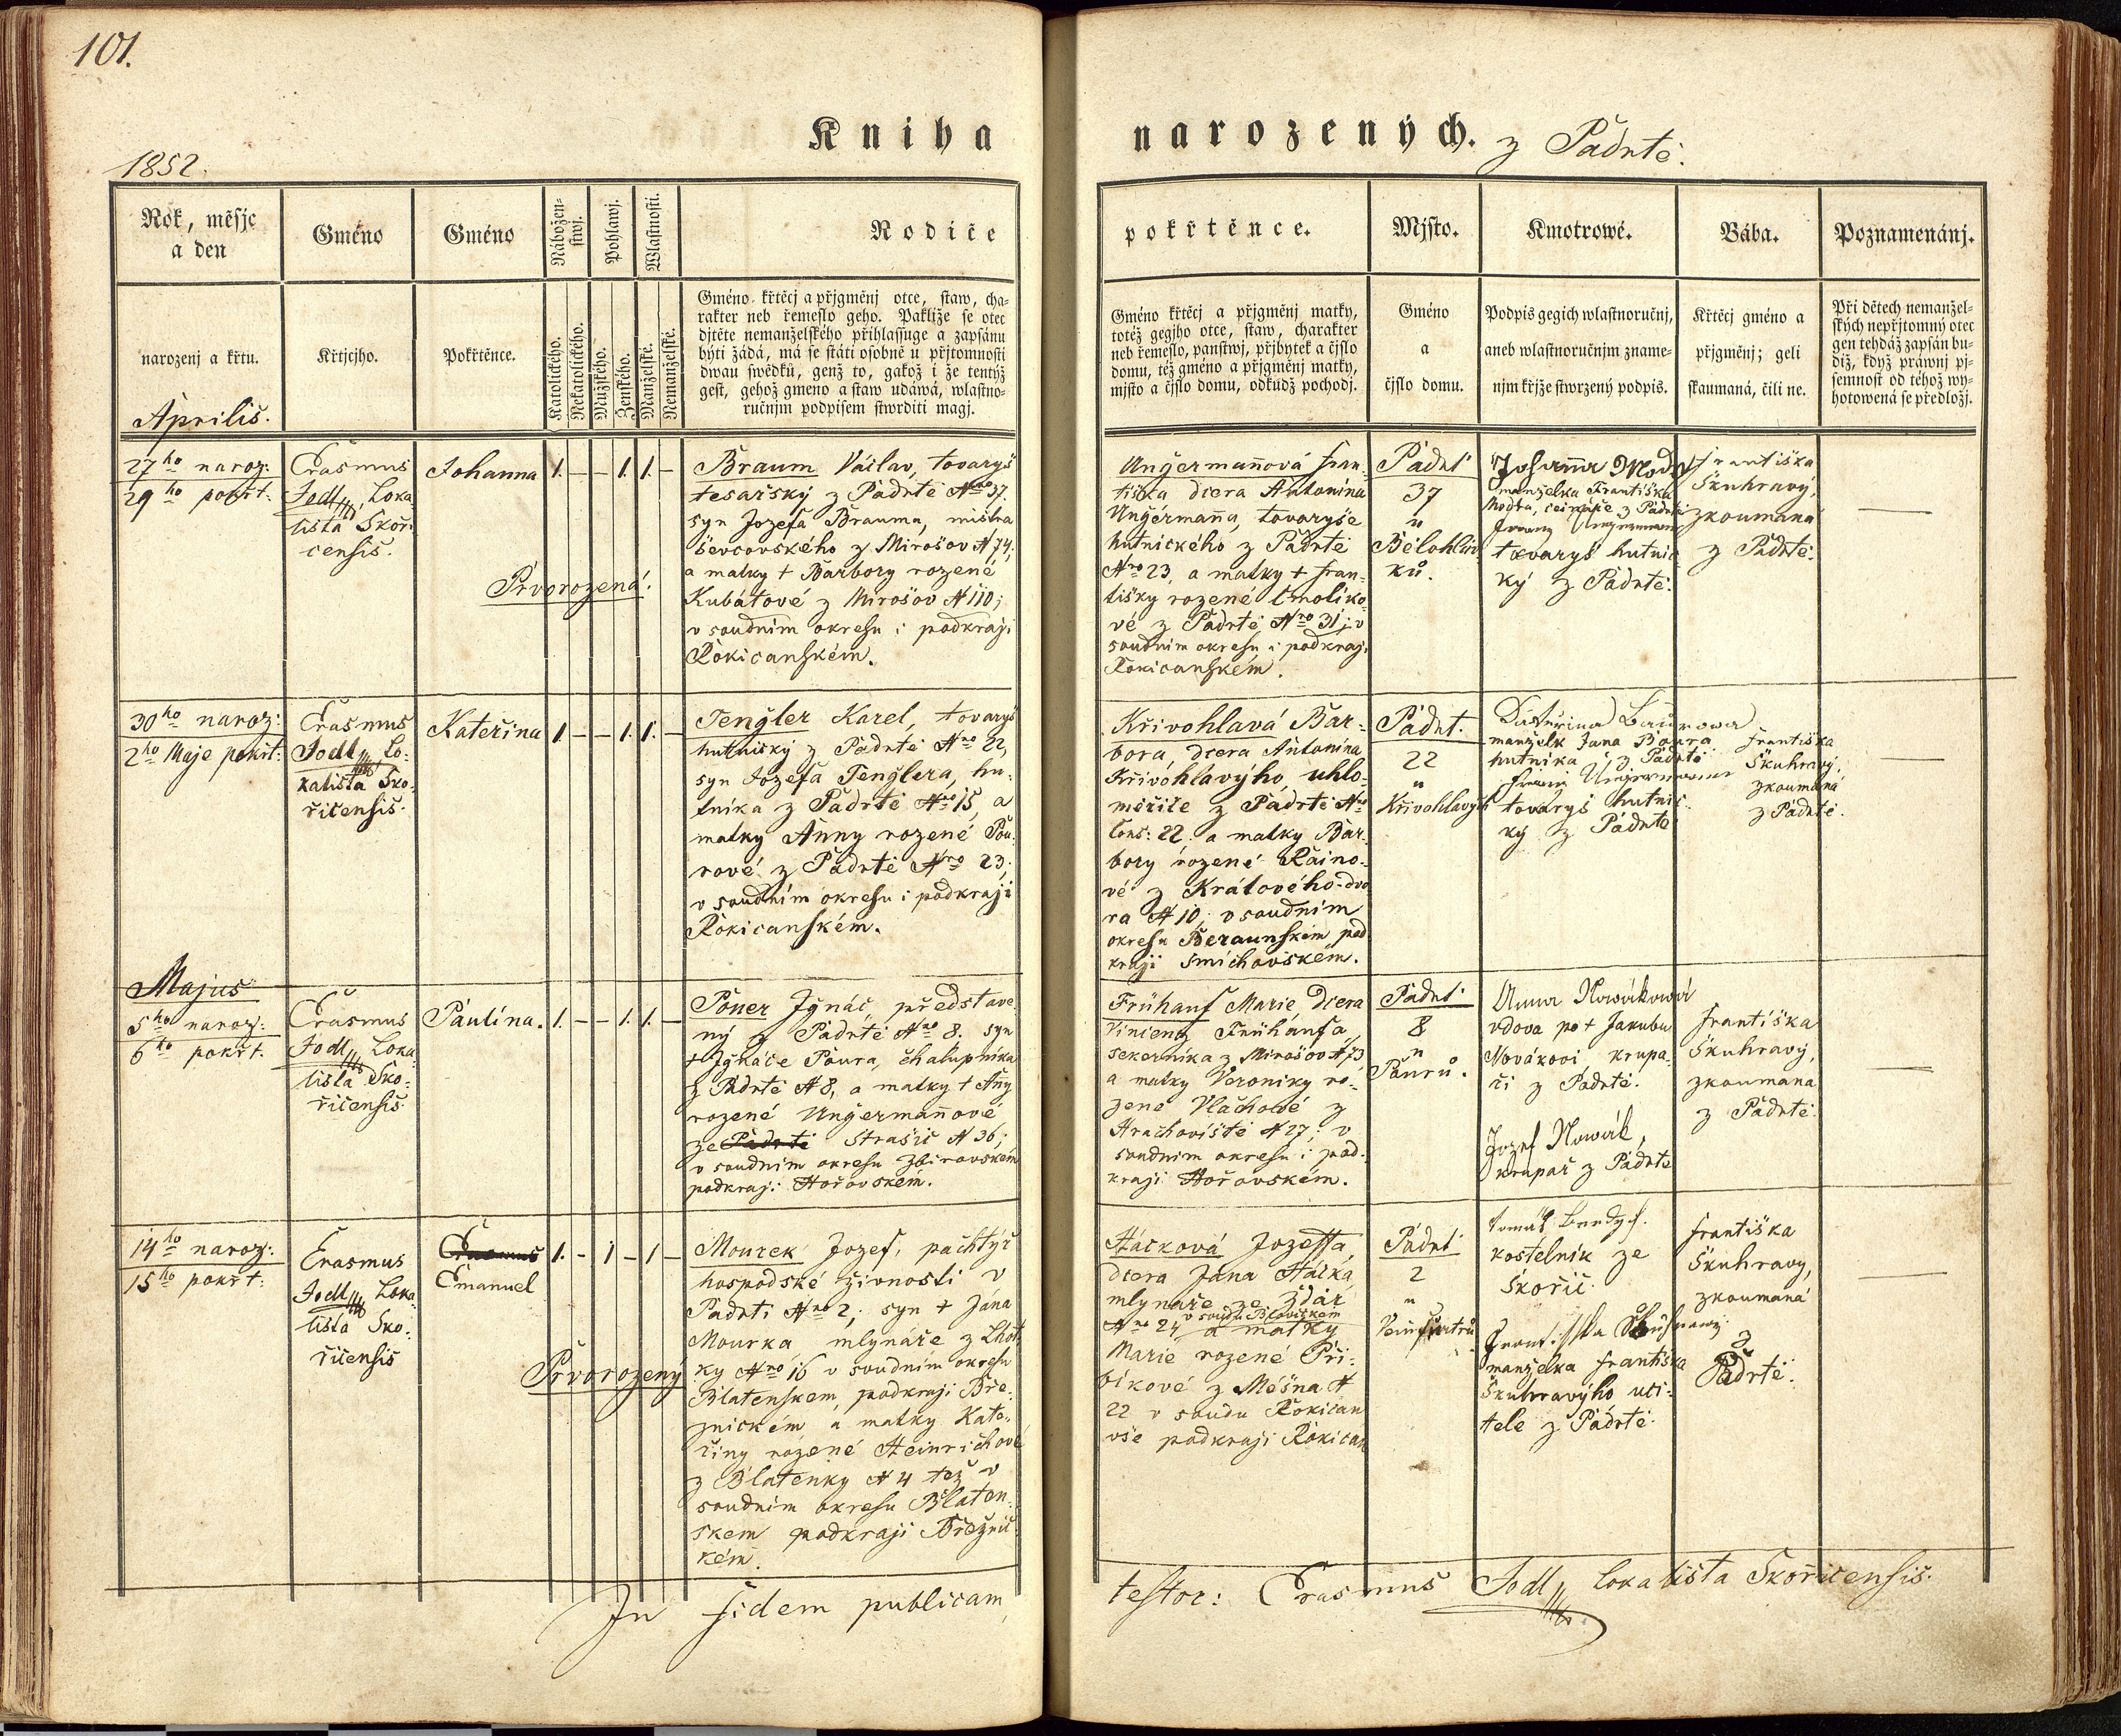 101.
Kniha
narozených. z Padrtě.
1852.
Rok, měsjc
a den
Gméno
Gméno
Nábožen-
stwj.
Pohlawj.
Wlastnosti.
Rodiče
pokřtěnce.
Mjsto.
Kmotrowé.
Bába.
Poznamenánj.
narozenj a křtu.
Křtjcjho.
Pokřtěnce.
Katolického.
Nekatolického.
Mužského.
Ženského.
Manželské.
Nemanželské.
Gméno křtěcj a přjgmenj otce, staw, cha-
rakter neb řemeslo geho. Pakliže se otec
djtěte nemanželského přihlassuge a zapsánu
býti žádá, má se státi osobně u přjtomnosti
dwau swědků, genž to, gakož i že tentýž
gest, gehož gmeno a staw udáwá, wlastno-
ručnjm podpisem stwrditi magj.
Gméno křtěcj a přjgmenj matky,
totéž gegjho otce, staw, charakter
neb řemeslo, panstwj, přjbytek a čjslo
domu, též gméno a přjgmenj matky,
mjsto a čjslo domu, odkudž pochodj.
Gméno
a
čjslo domu.
Podpis gegich wlastnoručnj,
aneb wlastnoručnjm zname-
njm křjže stwrzený podpis.
Křtěcj gméno a
přjgmenj; geli
skaumaná, čili ne.
Při dětech nemanžel-
ských nepřjtomný otec
gen tehdáž zapsán bu-
diž, když práwnj pj-
semnost od téhož wy-
hotowená se předložj.
Aprilis.
27ho naroz:
29ho pokřt:
Erasmus
Jodl, Loka-
lista Skoři-
censis.
Johanna
1. — — 1. 1. —
Prvorozená.
Braum Václav, tovaryš
tesařský z Padrtě Nro 37.
syn Jozefa Brauma, mistra
ševcovského z Mirošov N 74;
a matky + Barbory rozené
Kubátové z Mirošov N 110;
v soudním okresu i podkraji
Rokicanském.
Ungermannová Fran-
tiška dcera Antonína
Ungermanna, tovaryše
hutnického z Padrtě
Nro 23, a matky + Fran-
tišky rozené Smoliko-
vé z Padrtě Nro 31; v
soudním okresu i podkraji
Rokicanském.
Padrt
37
u
Bělohláv-
ků.
Johanna
manželka Františka
z Padrtě
tovaryš hutnic-
ký z Padrtě.
Františka
Škuhravý,
zkoumaná
z Padrtě.
30ho naroz:
2ho Maje pokřt:
Erasmus
Jodl, Lo-
kalista Sko-
řicensis.
Kateřina
1. — — 1. 1. —
Tengler Karel, tovaryš
hutnický z Padrtě Nro 22,
syn Jozefa Tenglera, hu-
tníka z Padrtě Nro 15, a
matky Anny rozené Pou-
rové z Padrtě Nro 23;
v soudním okresu i podkraji
Rokicanském.
Křivohlavá Bar-
bora, dcera Antonína
Křivohlavýho, uhlo-
měřiče z Padrtě Nro
Cons: 22; a matky Bar-
bory rozené Raino-
vé z Králového-dvo-
ra N 10; v soudním
okresu Beraunském pod-
kraji Smíchovském.
Padrt.
22
u
Křivohlavých
manželk Jana
hutníka z Padrtě
tovaryš hutnic-
ký z Padrtě
Františka
Škuhravý,
zkoumaná
z Padrtě.
Majus
5ho naroz:
6ho pokřt.
Erasmus
Jodl, Loka-
lista Sko-
řicensis.
Paulína.
1. — — 1. 1. —
Pouer Ignác, představe-
ný z Padrtě Nro 8. syn
+ Ignáce Poura, chalupníka
z Padrtě N 8, a matky + Anny
rozené Ungermannové
ze Padrtě Strašic N 36;
v soudním okresu Zbirovském
podkraji Hořovském.
Frühauf Marie, dcera
Vincenz Frühaufa,
sekerníka z Mirošov N 73
a matky Veroniky ro-
zené Vlachové z
Hrachoviště N 27; v
soudním okresu i pod-
kraji Hořovském.
Padrt.
8
u
Pourů.
Anna Nowákowá
vdova po + Jakubu
Novákovi, krupa-
ři z Padrtě.
Jozef Nowák,
krupař z Padrtě
Františka
Škuhravý,
zkoumaná
z Padrtě.
14ho naroz:
15ho pokřt:
Erasmus
Jodl, Loka-
lista Sko-
řicensis
Erasmus
Emanuel
1. — 1 — 1 —
Prvorozený
Mourek Jozef, pachtýř
hospodské živnosti v
Padrti Nro 2, syn + Jána
Mourka, mlynáře z Lhot-
ky Nro 16 v soudním okresu
Blatenskem, podkraji Bře-
znickém, a matky Kate-
řiny rozené Heinrichové
z Blatenky N 4 též v
soudním okresu Blaten-
skem podkraji Březnic-
kém.
Háčková Jozeffa,
dcera Jana Háčka,
mlynáře ze Ždár
v soudu Blovickém
Nro 24 a matky
Marie rozené Při-
bikové z Měšna N
22 v soudu Rokican
vše podkraji Rokican
Padrt
2
u
Tomáš
kostelník ze
Skořic.
Františka
manželka Františka
Škuhravýho uči-
tele z Padrtě.
Františka
Škuhravý,
zkoumaná
z
Padrtě.
In fidem publicam
testor: Erasmus Jodl, Lokalista Skořicensis.